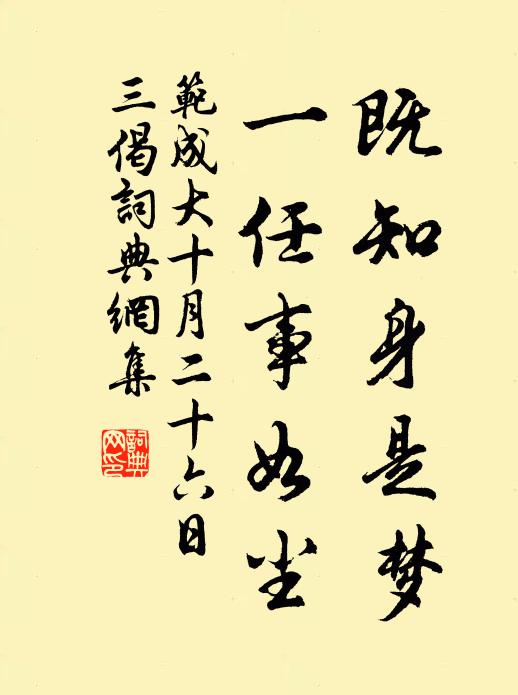 既知身是梦
一任事如尘
範成大十月二十六日
三偈詞典網集
詞典網印